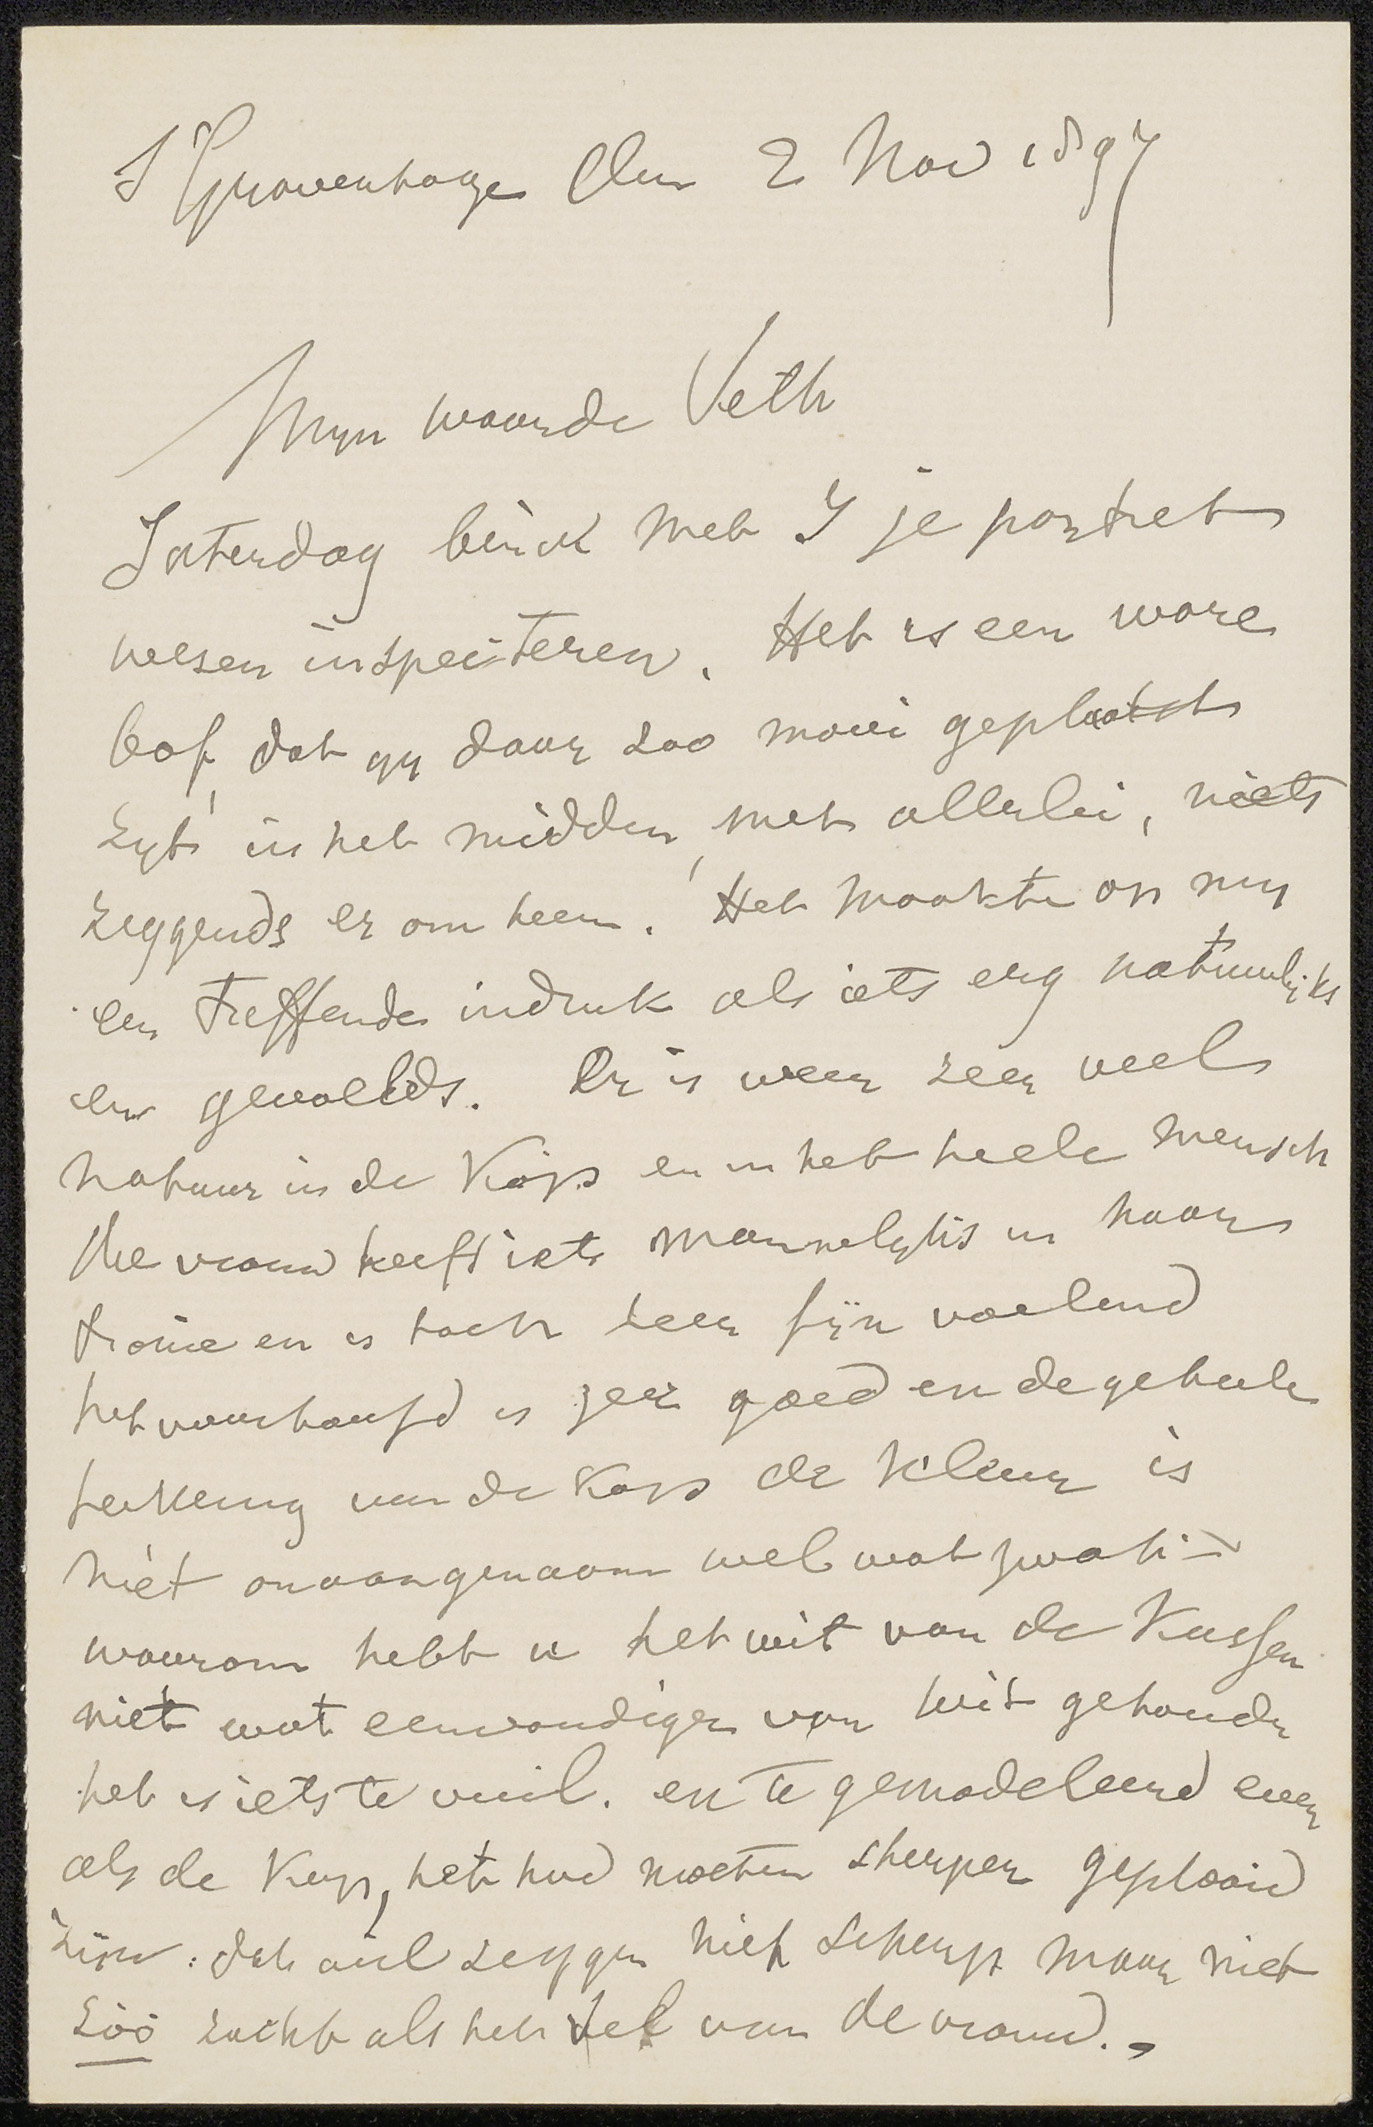 S Gravenhage den 2 Nov 1897
Mijn waarde Veth
Zaterdag ben ik met I je portret
wesen inspecteren. Het is een ware
bof, dat gy daar zoo mooi geplaatst
zyt in het midden, met allerlei, niets
zeggends er om heen. Het maakte op my
een treffende indruk als iets erg natuurlijks
en gevoelds. Er is weer zeer veel
natuur in de Kop en in het heele mensch
De vrouw heeft iets mannelyks in haar
tronie en is toch zeer fijn voelend
het voorhoofd is zeer goed en de geheele
teekening van de Kop de kleur is
niet onaangenaam wel wat
waarom hebt u het wit van de Kussen
niet wat eenvoudiger van wit gehouden
het is iets te vuil. en te gemodeleerd even
als de Kap, het had moeten scherper geplooid
zijn: dat wil zeggen niet scherp maar niet
zóó zacht als het vel van de vrouw.